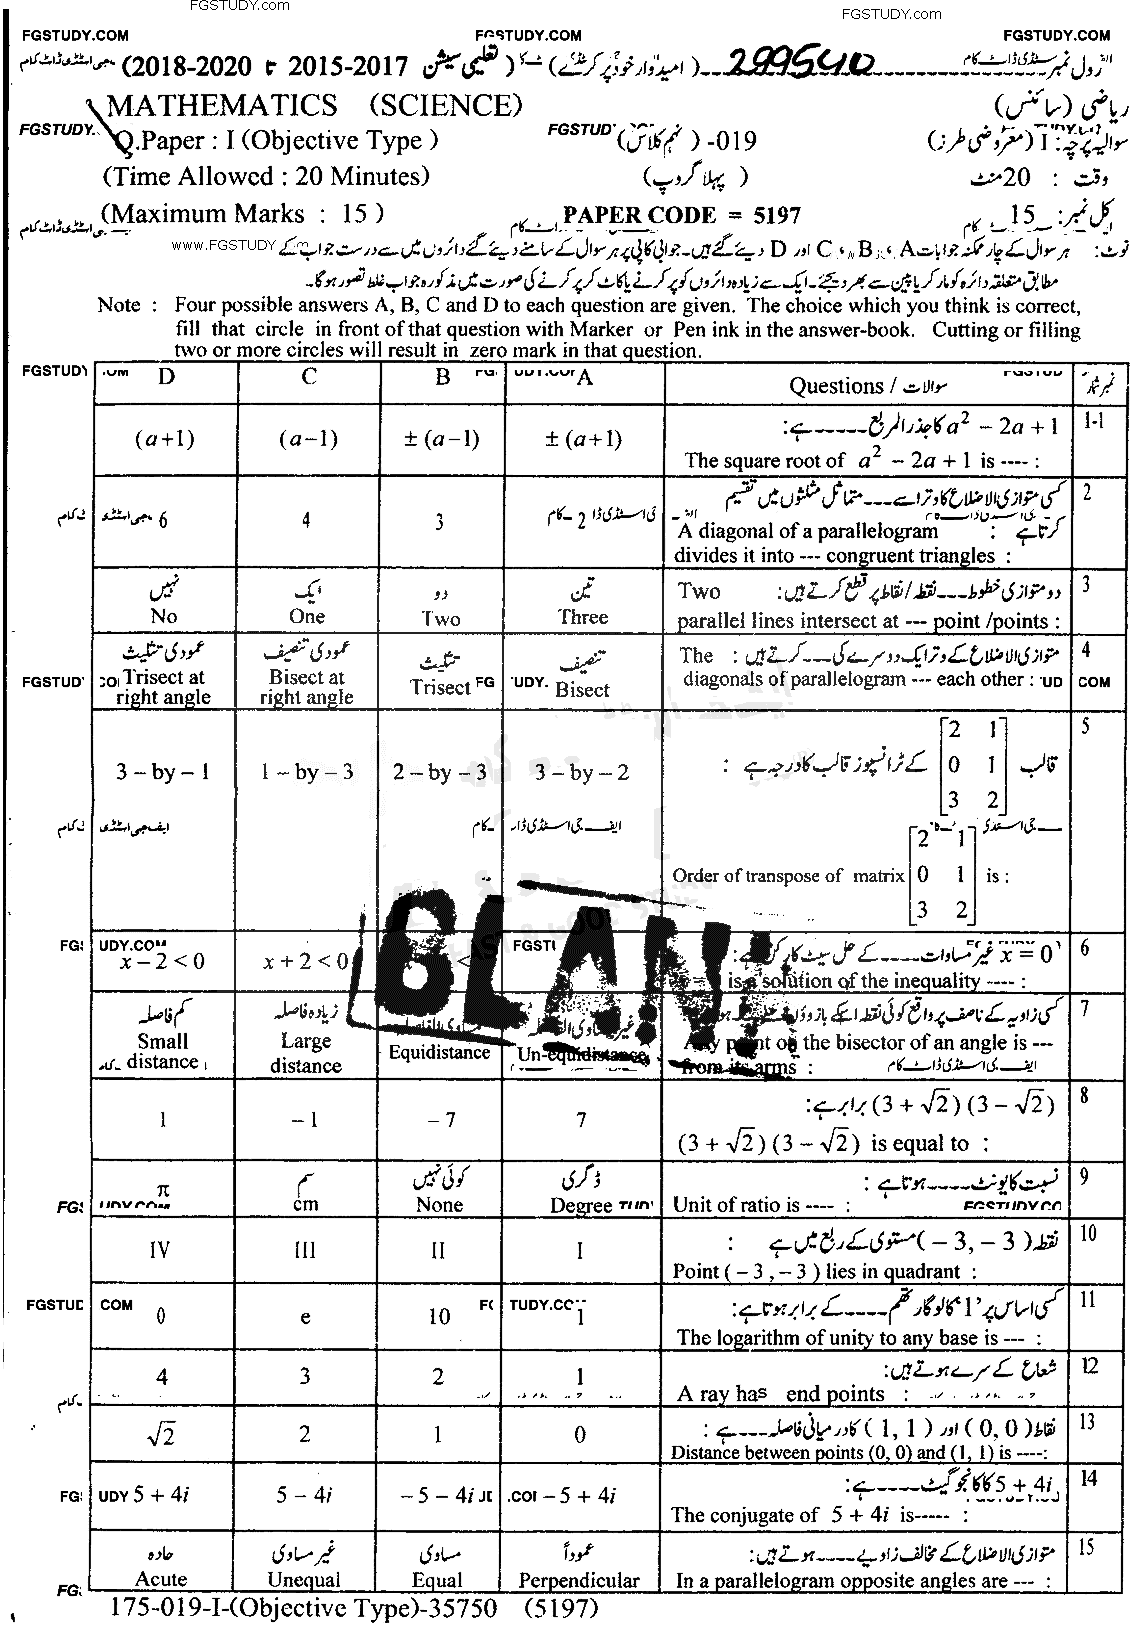 FGSTUDY.com
FGSTUDY.com
FGSTUDY.COM FGSTUDY.COM FGSTUDY.COM
رول نمبر 299540 (امیدوار خود پُر کرے) (تعلیمی سیشن 2015-2017 تا 2018-2020)
MATHEMATICS (SCIENCE) ریاضی (سائنس)
FGSTUDY. Q.Paper : I (Objective Type ) FGSTUD 019- (نہم کلاس) سوالیہ پرچہ : I (معروضی طرز)
(Time Allowed : 20 Minutes) (پہلا گروپ) وقت : 20 منٹ
(Maximum Marks : 15 ) PAPER CODE = 5197 کل نمبر : 15
نوٹ: ہر سوال کے چار ممکنہ جوابات A، B، C اور D دیئے گئے ہیں۔ جوابی کاپی پر ہر سوال کے سامنے دیئے گئے دائروں میں سے درست جواب کے www.FGSTUDY
مطابق متعلقہ دائرہ کو مارکر یا پین سے بھر دیجئے۔ ایک سے زیادہ دائروں کو پُر کرنے یا کاٹ کر پُر کرنے کی صورت میں مذکورہ جواب غلط تصور ہو گا۔
Note : Four possible answers A, B, C and D to each question are given. The choice which you think is correct,
fill that circle in front of that question with Marker or Pen ink in the answer-book. Cutting or filling
two or more circles will result in zero mark in that question.
FGSTUDY .OM D C B A Questions / سوالات نمبر شمار
a² − 2a + 1 کا جذر المربع ------ ہے: 1-1
(a+1) (a−1) ± (a−1) ± (a+1)
The square root of a² − 2a + 1 is ---- :
کسی متوازی الاضلاع کا وتر اسے --- متماثل مثلثوں میں تقسیم 2
6 4 3 2
کرتا ہے : A diagonal of a parallelogram
divides it into --- congruent triangles :
نہیں ایک دو تین دو متوازی خطوط --- نقطہ / نقاط پر قطع کرتے ہیں: Two 3
No One Two Three parallel lines intersect at --- point /points :
عمودی تثلیث عمودی تنصیف تثلیث تنصیف متوازی الاضلاع کے وتر ایک دوسرے کی --- کرتے ہیں : The 4
FGSTUD Trisect at Bisect at Trisect Bisect diagonals of parallelogram --- each other : COM
right angle right angle
2 1 5
قالب 0 1 کے ٹرانسپوز قالب کا درجہ ہے :
3 2
3 − by − 1 1 − by − 3 2 − by − 3 3 − by − 2
2 1
Order of transpose of matrix 0 1 is :
3 2
BLAN
x = 0 غیر مساوات ----- کے حل سیٹ کا رکن ہے: 6
x − 2 < 0 x + 2 < 0 <
is a solution of the inequality ---- :
کم فاصلہ زیادہ فاصلہ مساوی الفاصلہ غیر مساوی الفاصلہ کسی زاویہ کے ناصف پر واقع کوئی نقطہ اسکے بازوؤں سے 7
Small Large Equidistance Un-equidistance Any point on the bisector of an angle is ---
distance distance from its arms :
(3 + √2) (3 − √2) برابر ہے: 8
1 −1 −7 7
(3 + √2) (3 − √2) is equal to :
سم کوئی نہیں ڈگری نسبت کا یونٹ ----- ہوتا ہے : 9
π cm None Degree Unit of ratio is ---- :
نقطہ (−3, −3) مستوی کے ربع میں ہے : 10
IV III II I
Point (−3 , −3 ) lies in quadrant :
FGSTUD COM کسی اساس پر '1' کا لوگارتھم ---- کے برابر ہوتا ہے: 11
0 e 10 1
The logarithm of unity to any base is --- :
شعاع کے سرے ہوتے ہیں: 12
4 3 2 1
A ray has end points :
نقاط (0, 0) اور (1, 1) کا درمیانی فاصلہ ---- ہے : 13
√2 2 1 0
Distance between points (0, 0) and (1, 1) is ----:
5 + 4i کا کانجوگیٹ ----- ہے: 14
5 + 4i 5 − 4i −5 − 4i −5 + 4i
The conjugate of 5 + 4i is----- :
حادہ غیر مساوی مساوی عموداً متوازی الاضلاع کے مخالف زاویے ---- ہوتے ہیں: 15
Acute Unequal Equal Perpendicular In a parallelogram opposite angles are --- :
175-019-I-(Objective Type)-35750 (5197)